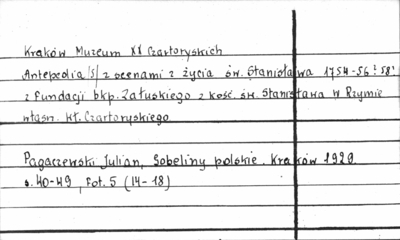 Kraków Muzeum XX Czartoryskich
Antepedia /5/ z scenami z życia św. Stanisława 1754-56? 58?
z fundacji bkp. Załuskiego z kość. św. Stanisława w Rzymie
własn. kł. Czartoryskiego
Pagaczewski Julian, Gobeliny polskie. Kraków 1929
s. 40-49, fot. 5 (14-18)